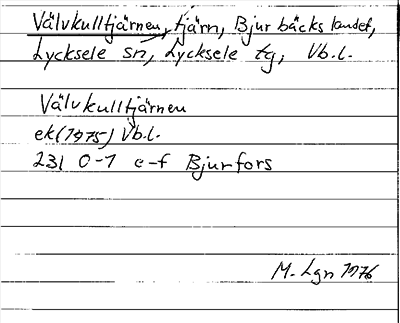 Välvkulltjärnen, tjärn, Bjurbäckslandet,
Lycksele sn, Lycksele tg, Vb.l.
Välvkulltjärnen
ek (1975) Vb.l.
23I 0-1 e-f Bjurfors
M. Lgn 1976